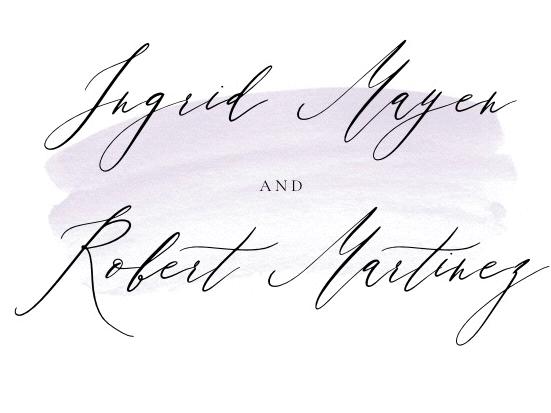 Ingrid Mayen
AND
Robert Martinez